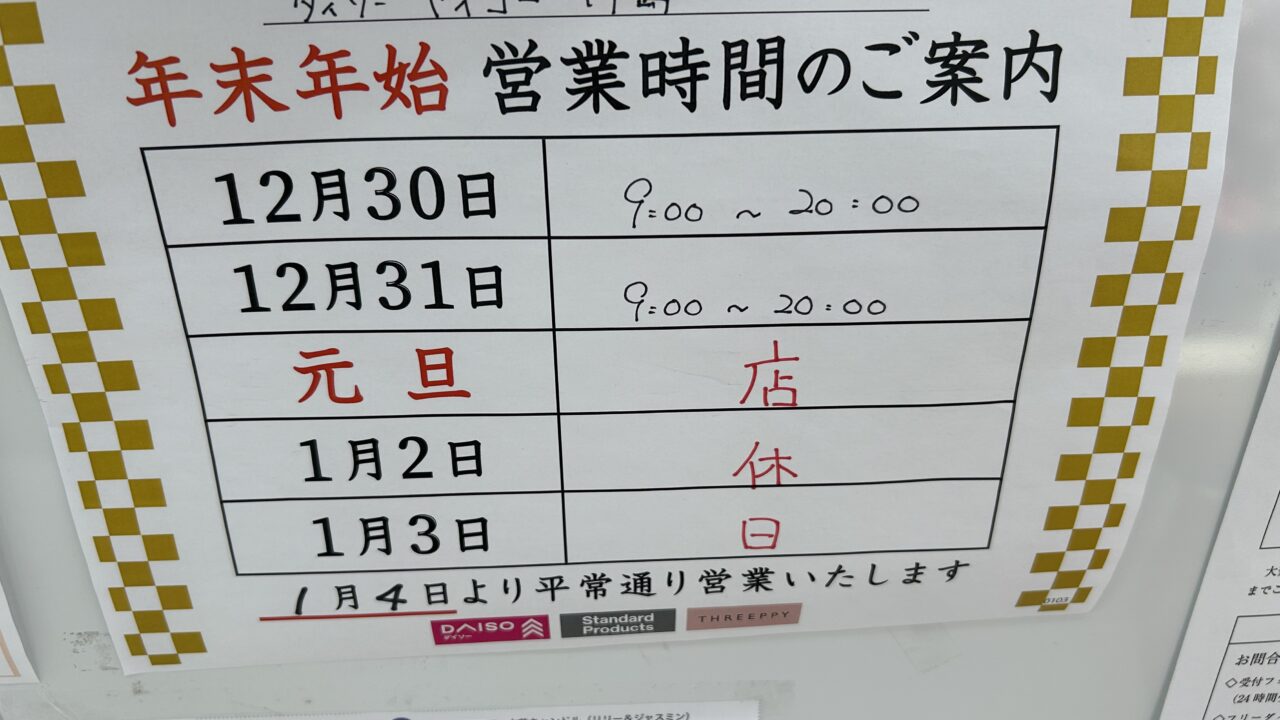 年末年始 営業時間のご案内
12月30日 9:00 ~ 20:00
12月31日 9:00 ~ 20:00
元旦 店
1月2日 休
1月3日 日
1月4日より平常通り営業いたします
0103
DAISO ダイソー
Standard Products
THREEPPY
お問合
◇受付フ
(24時間
◇フリーダ
(リリー&ジャスミン)